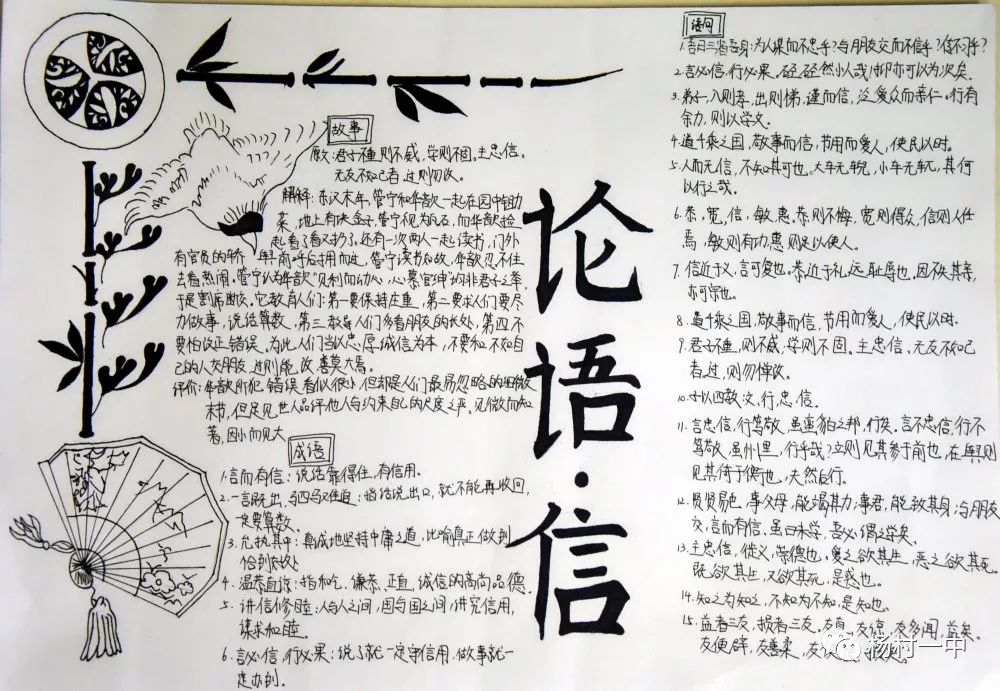 故事
原文：君子不重则不威，学则不固。主忠信。
无友不如己者，过则勿改。
解释：东汉末年，管宁和华歆一起在园中锄
菜，地上有块金子，管宁视为瓦石，而华歆捡
起看了看又扔了。还有一次两人一起读书，门外
有官员的轿
管宁读书如故，华歆忍不住
去看热闹。管宁认为华歆"见利而动心，
非君子之举，
于是割席断交。它教育人们：第一要保持庄重，第二要求人们要尽
力做事，说话算数，第三教导人们多看朋友的长处，第四不
要怕改正错误。为此人们当以忠厚诚信为本，不要和不如自
己的人交朋友，过则能改，善莫大焉。
评价：华歆所犯错误看似很小，但却是人们最易忽略的细微
末节，但足见世人品评他人与约束自己的尺度之严。见微而知
著，因小而见大
成语
1.言而有信：说话靠得住，有信用。
2.一言既出，驷马难追：
话说出口，就不能再收回，
一定要算数。
3.允执其中：真诚地坚持中庸之道，比喻真正做到
恰到好处
4.温恭直谅：指和气、谦恭、正直、诚信的高尚品德。
5.讲信修睦：人与人之间，国与国之间，讲究信用，
谋求和睦
6.言必信，行必果：说了就一定守信用，做事就一
定办到。
论语·信
语句
1.吾日三省吾身：为人谋而不忠乎？与朋友交而不信乎？传不习乎？
2.言必信，行必果。硁硁然小人哉！抑亦可以为次矣。
3.弟子，入则孝，出则悌，谨而信，泛爱众而亲仁。行有
余力，则以学文。
4.道千乘之国，敬事而信，节用而爱人，使民以时。
5.人而无信，不知其可也。大车无輗，小车无軏，其何
以行之哉
6.恭，宽，信，敏，惠。恭则不侮，宽则得众，信则人任
焉，敏则有功，惠则足以使人。
7.信近于义，言可复也。恭近于礼，远耻辱也，因不失其亲，
亦可宗也。
8.道千乘之国，敬事而信，节用而爱人，使民以时。
9.君子不重，则不威，学则不固。主忠信、无友不如己
者，过，则勿惮改。
10.子以四教：文、行、忠、信。
11.言忠信，行笃敬，虽蛮貊之邦，行矣。言不忠信，行不
笃敬，虽州里，行乎哉？立则见其参于前也，在舆则
见其倚于衡也，夫然后行。
12.贤贤易色，事父母，能竭其力；事君，能致其身；与朋友
交，言而有信。虽曰未学，吾必谓之学矣。
13.主忠信，徙义，崇德也。爱之欲其生，恶之欲其死。
既欲其生，又欲其死，是惑也。
14.知之为知之，不知为不知，是知也。
15.益者三友，损者三友。友直，友谅，友多闻，益矣。
友便辟，友善柔，友
损矣。
杨村一中